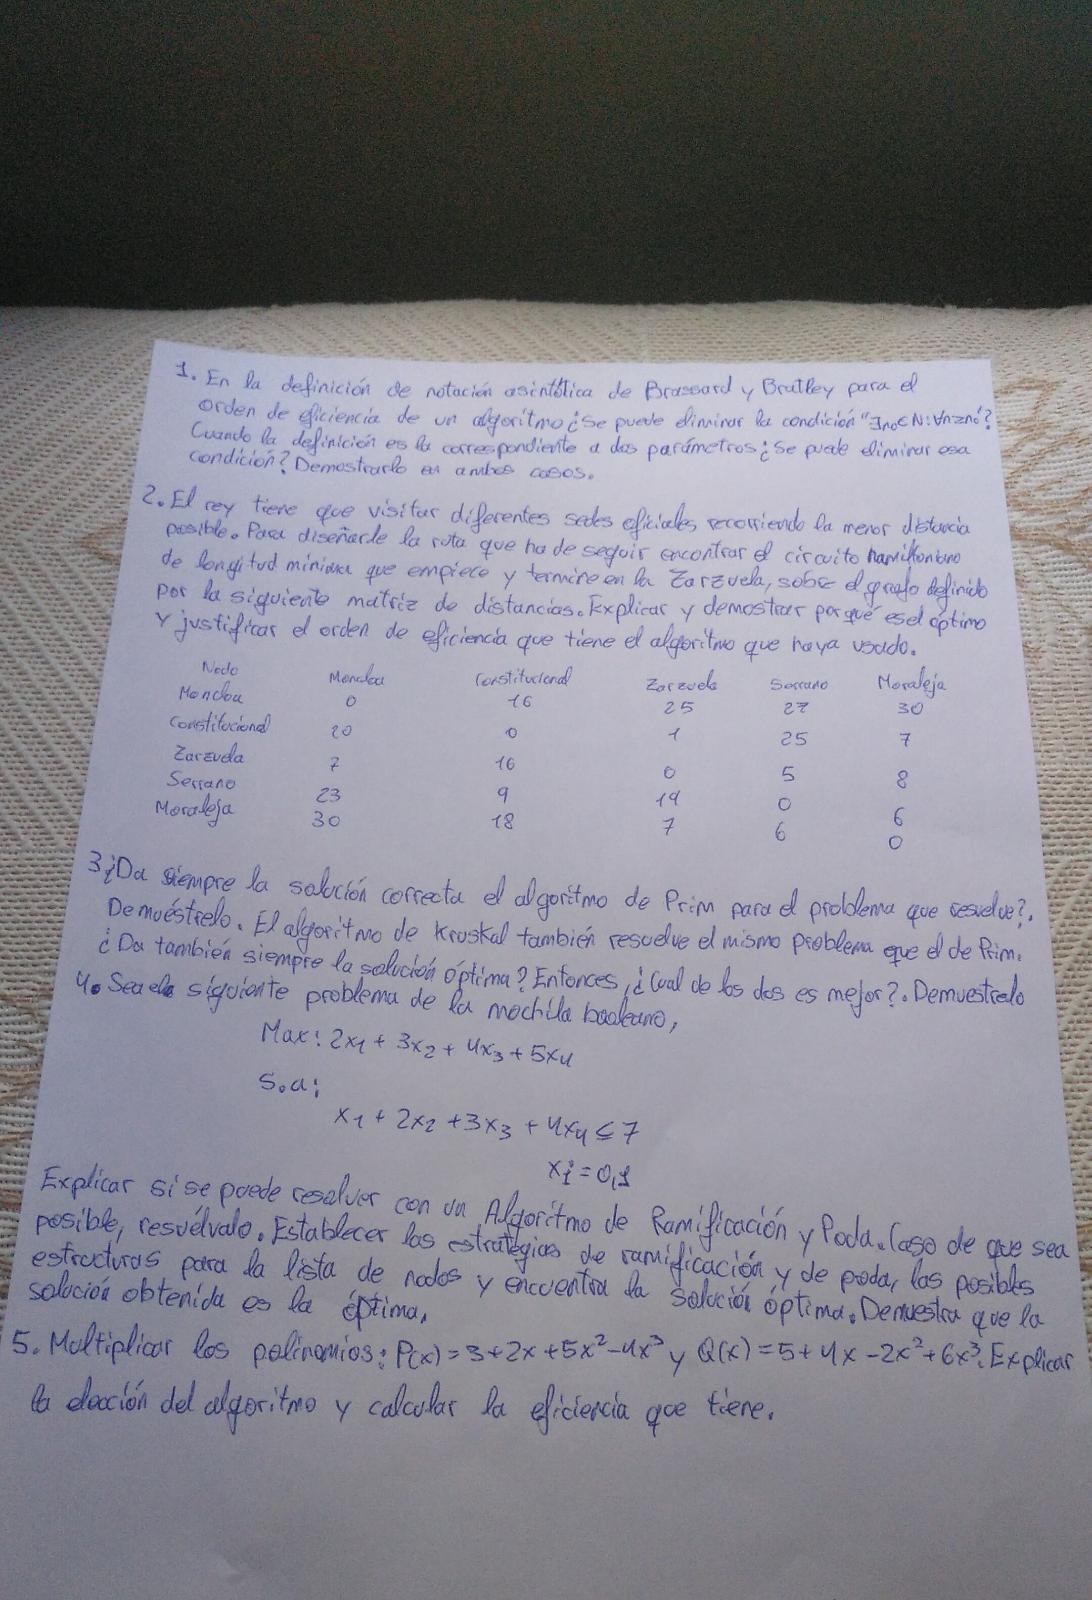 1. En la definición de notación asintótica de Brassard y Bratley para el
orden de eficiencia de un algoritmo ¿Se puede eliminar la condición "∃n₀∈N: ∀n≥n₀"?
Cuando la definición es la correspondiente a dos parámetros ¿Se puede eliminar esa
condición? Demostrarlo en ambos casos.
2. El rey tiene que visitar diferentes sedes oficiales recorriendo la menor distancia
posible. Para diseñarle la ruta que ha de seguir encontrar el circuito hamiltoniano
de longitud mínima que empiece y termine en la Zarzuela, sobre el grafo definido
por la siguiente matriz de distancias. Explicar y demostrar por qué es el óptimo
y justificar el orden de eficiencia que tiene el algoritmo que haya usado.
Nodo Moncloa Constitucional Zarzuela Serrano Moraleja
Moncloa 0 16 25 27 30
Constitucional 20 0 1 25 7
Zarzuela 7 16 0 5 8
Serrano 23 9 19 0 6
Moraleja 30 18 7 6 0
3. ¿Da siempre la solución correcta el algoritmo de Prim para el problema que resuelve?.
Demuéstrelo. El algoritmo de Kruskal también resuelve el mismo problema que el de Prim.
¿Da también siempre la solución óptima? Entonces, ¿Cual de los dos es mejor?. Demuestrelo
4. Sea el siguiente problema de la mochila booleano,
Max: 2x₁ + 3x₂ + 4x₃ + 5x₄
S.a:
x₁ + 2x₂ + 3x₃ + 4x₄ ≤ 7
xᵢ = 0,1
Explicar si se puede resolver con un Algoritmo de Ramificación y Poda. Caso de que sea
posible, resuélvalo. Establecer las estrategias de ramificación y de poda, las posibles
estructuras para la lista de nodos y encuentra la solución óptima. Demuestra que la
solución obtenida es la óptima.
5. Multiplicar los polinomios: P(x) = 3+2x+5x²-4x³ y Q(x) = 5+4x-2x²+6x³. Explicar
la elección del algoritmo y calcular la eficiencia que tiene.